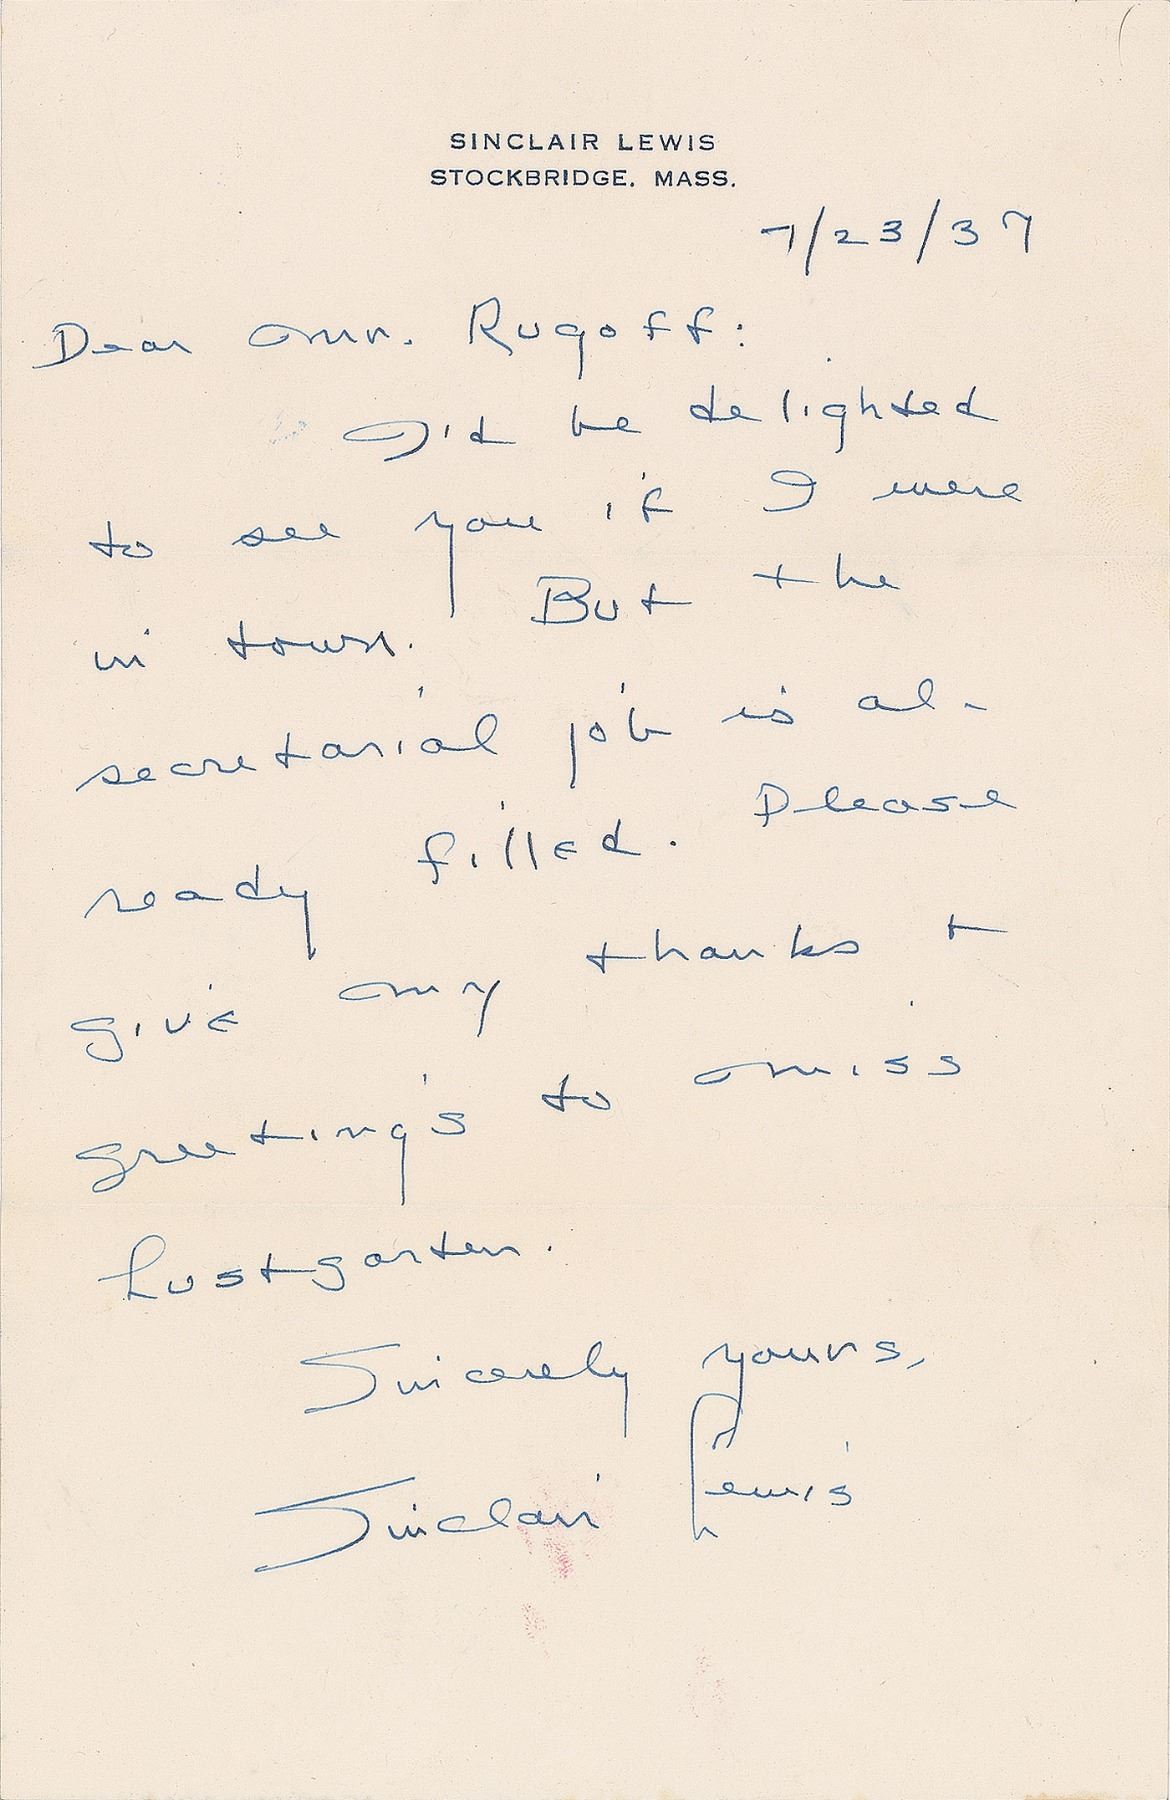 SINCLAIR LEWIS
STOCKBRIDGE. MASS.
7/23/37
Dear Mr. Rugoff:
I'd be delighted
to see you if I were
in town. But the
secretarial job is al-
ready filled. Please
give my thanks &
greetings to Miss
Lustgarten.
Sincerely yours,
Sinclair Lewis